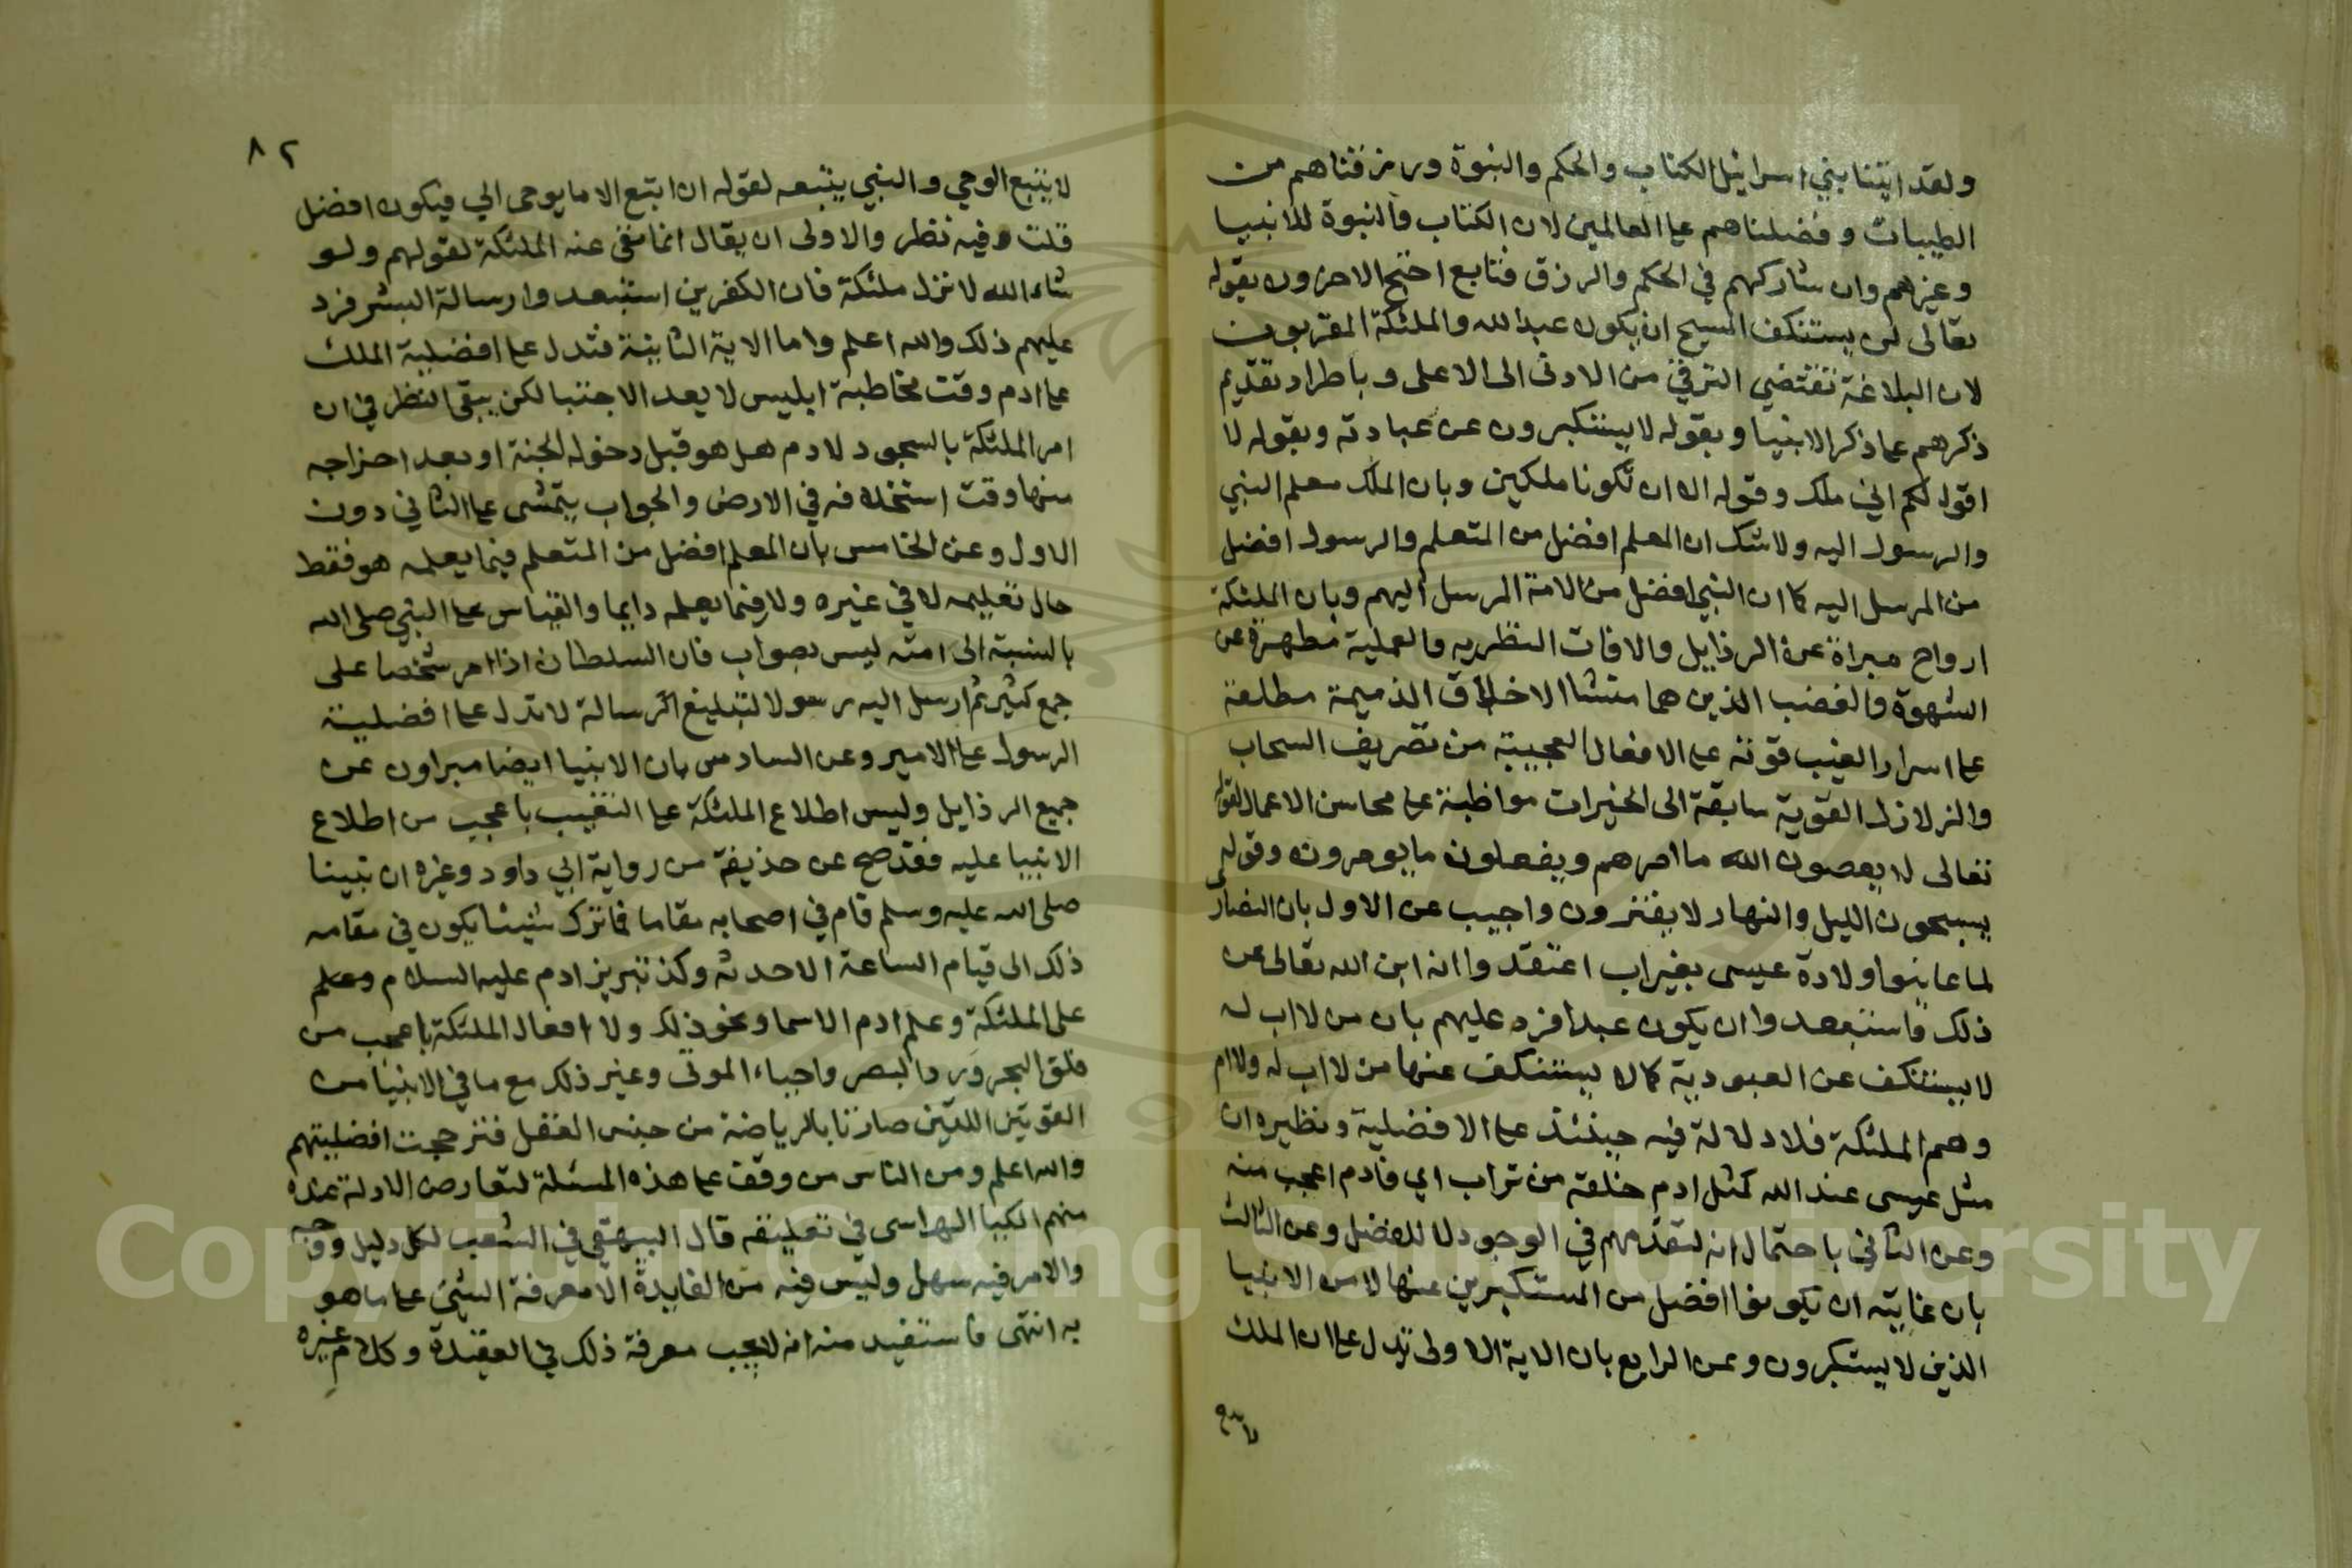 ولقد اتينا بني اسرائيل الكتاب والحكم والنبوة ورزقناهم من
الطيبات وفضلناهم على العالمين لان الكتاب والنبوة للانبيا
وغيرهم وان شاركهم في الحكم والرزق فتابع احتج الاخرون بقوله
تعالى لن يستنكف المسيح ان يكون عبدا لله والملئكة المقربون
لان البلاغة تقتضي الترقي من الادنى الى الاعلى وباطراد تقديم
ذكرهم على ذكر الانبيا وبقوله لا يستكبرون عن عبادته وبقوله لا
اقول لكم اني ملك وقوله الا ان تكونا ملكين وبان الملك معلم النبي
والرسول اليه ولا شك ان المعلم افضل من المتعلم والرسول افضل
من المرسل اليه كما ان النبي افضل من الامة المرسل اليهم وبان الملئكة
ارواح مبراة عن الرذايل والافات النظريه والعملية مطهرة عن
الشهوة والغضب الذين هما منشا الاخلاق الذميمة مطلعة
على اسرار الغيب قوته على الافعال العجيبة من تصريف السحاب
والزلازل القوية سابقة الى الخيرات مواظبة على محاسن الاعمال لقوله
تعالى لا يعصون الله ما امرهم ويفعلون ما يومرون وقوله
يسبحون الليل والنهار لا يفترون واجيب عن الاول بان النصارى
لما عاينوا ولادة عيسى بغير اب اعتقدوا انه ابن الله تعالى عن
ذلك فاستبعدوا ان يكون عبدا فرد عليهم بان من لا اب له
لا يستنكف عن العبودية كما لا يستنكف عنها من لا اب له ولا ام
وهم الملئكة فلا دلالة فيه حينئذ على الافضلية ونظيره ان
مثل عيسى عند الله كمثل ادم خلقه من تراب اي فادم اعجب منه
وعن الثاني باحتمال انه لتقدمهم في الوجود لا للفضل وعن الثالث
بان غايته ان يكونوا افضل من المستكبرين عنها لا من الانبيا
الذين لا يستكبرون وعن الرابع بان الاية الاولى تدل على ان الملك
لا يتبع
٨٢
لا يتبع الوحي والنبي يتبعه لقوله ان اتبع الا ما يوحى الي فيكون افضل
قلت وفيه نظر والاولى ان يقال انما نفى عنه الملئكة لقولهم ولو
شاء الله لانزل ملئكة فان الكفرين استبعدوا رسالة البشر فرد
عليهم ذلك والله اعلم واما الاية الثانية فتدل على افضلية الملك
على ادم وقت مخاطبة ابليس لا بعد الاجتبا لكن يبقى النظر في ان
امر الملئكة بالسجود لادم هل هو قبل دخوله الجنة او بعد اخراجه
منها وقت استخلافه في الارض والجواب يتمشى على الثاني دون
الاول وعن الخامس بان المعلم افضل من المتعلم فيما يعلمه هو فقط
حال تعليمه لا في غيره ولا فيما يعلمه دايما والقياس على النبي صلى الله
بالنسبة الى امته ليس بصواب فان السلطان اذا امر شخصا على
جمع كثير ثم ارسل اليه رسولا لتبليغ الرسالة لا تدل على افضلية
الرسول على الامير وعن السادس بان الانبيا ايضا مبراون عن
جميع الرذايل وليس اطلاع الملئكة على الغيب باعجب من اطلاع
الانبيا عليه فقد صح عن حذيفة من رواية ابي داود وغيره ان نبينا
صلى الله عليه وسلم قام في اصحابه مقاما فما ترك شيئا يكون في مقامه
ذلك الى قيام الساعة الا حدثه وكذ تبريز ادم عليه السلام وعلم
على الملئكة وعلم ادم الاسما ونحو ذلك ولا افعال الملئكة باعجب من
فلق البحر ورد البصر واحياء الموتى وغير ذلك مع ما في الانبيا من
القوتين اللتين صارتا بالرياضة من جنس العقل فترجحت افضليتهم
والله اعلم ومن الناس من وقف على هذه المسئلة لتعارض الادلة عنده
منهم الكيا الهراسي في تعليقه قال البيهقي في الشعب لكل دليل ووجه
والامر فيه سهل وليس فيه من الفايدة الا معرفة الشي على ما هو
به انتهى فاستفيد منه انه لا يجب معرفة ذلك في العقيدة وكلام غيره
Copyright © King Saud University